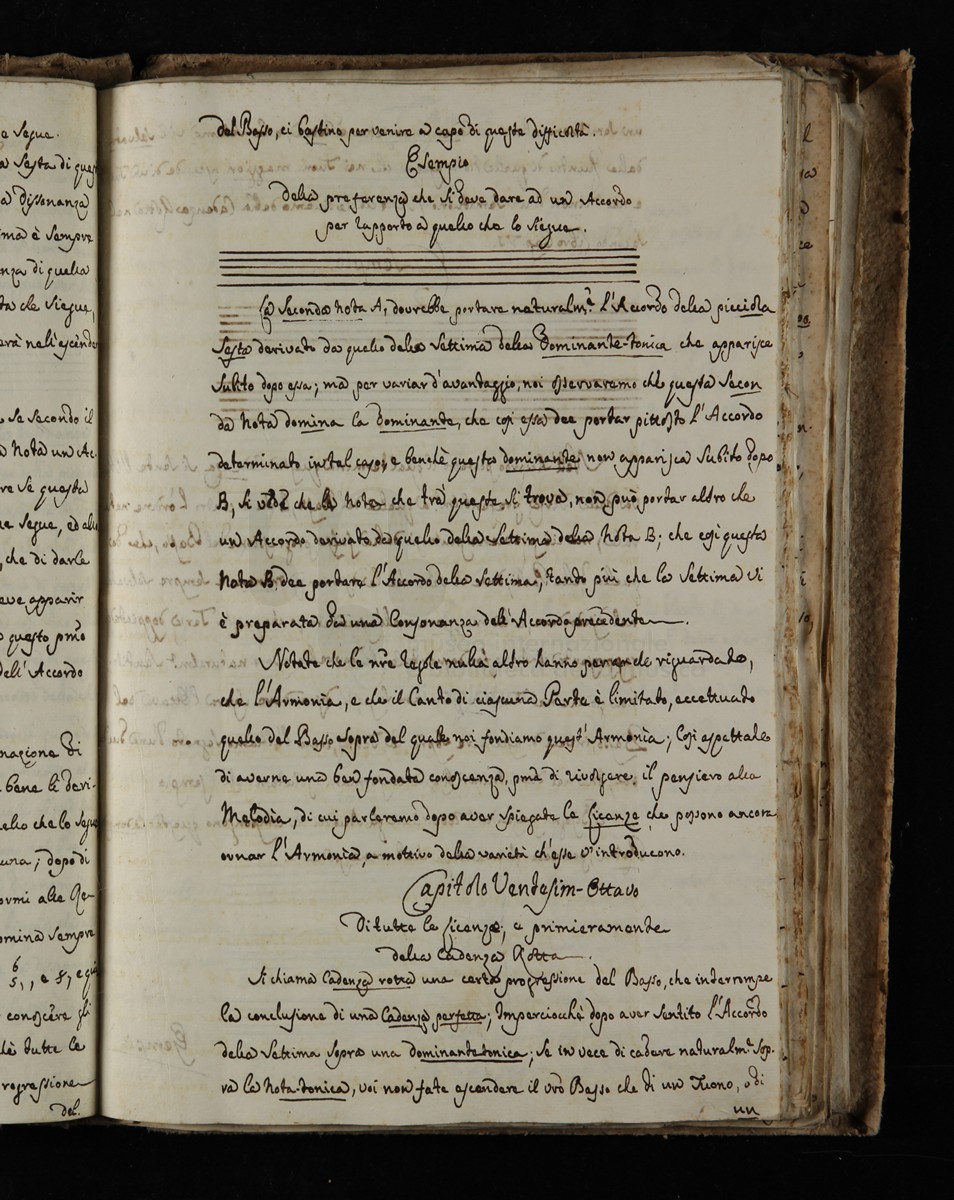 e Segue.
a Sesta di ques
a dissonanza
ima è Sempre
nza di quella
ta che Siegue,
erà nell'ascende
se Secondo il
a Nota un Ac.
re se questa
ue Segue, ed alu
che di darle
eve apparir
questo pmo
dell'Accordo
nazione di
bene le deri-
ello che lo Segue
ura; dopo di
ovmi alla Re-
omina Sempre
6
5, , e 8, e qui
conoscere gli
tutte le
rogressione
del.
del Basso, ci bastino per venire a capo di queste difficoltà.
Esempio
della preferenza che si deve dare ad un Accordo
per rapporto a quello che lo Siegue.
La Seconda nota A, dovrebbe portare naturalm.e l'Accordo della picciola
Sesta derivato da quello della Settima della Dominante-tonica che apparisce
Subito dopo essa; ma per variar d'avantaggio, noi osservaremo che questa Secon
da Nota domina la dominante, che così essa dee portar pittosto l'Accordo
determinato in tal caso, e benchè questa dominante non apparisca Subito dopo
B, si vede che la Nota che trà queste si trova, non può portar altro che
un Accordo derivato da quello della Settima della Nota B; che così questa
Nota B dee portare l'Accordo della Settima, tanto più che la Settima vi
è preparata da una Consonanza dell'Accordo precedente.
Notate che le nr̃e regole nulla altro hanno per anche riguardato,
che l'Armonia, e che il Canto di ciascuna Parte è limitato, eccettuato
quello del Basso sopra del quale noi fondiamo quest'Armonia; Così aspettate
di averne una ben fondata conoscenza, pmã di rivolgere il pensiero alla
Melodia, di cui parleremo dopo aver spiegate le Licenze che possono ancora
ornar l'Armonia, a mottivo della varietà ch'esse v'introducono.
Capitolo Ventesim-Ottavo
Di tutte le Licenze, e primieramente
della Cadenza Rotta.
Si chiama Cadenza rotta una certa progressione del Basso, che interrompe
la conclusione di una Cadenza perfetta; Imperciocchè dopo aver sentito l'Accordo
della Settima sopra una dominante tonica; se in vece di cadere naturalm.e Sop-
ra la Nota-tonica, voi non fate ascendere il vrõ Basso che di un Tuono, o di
un